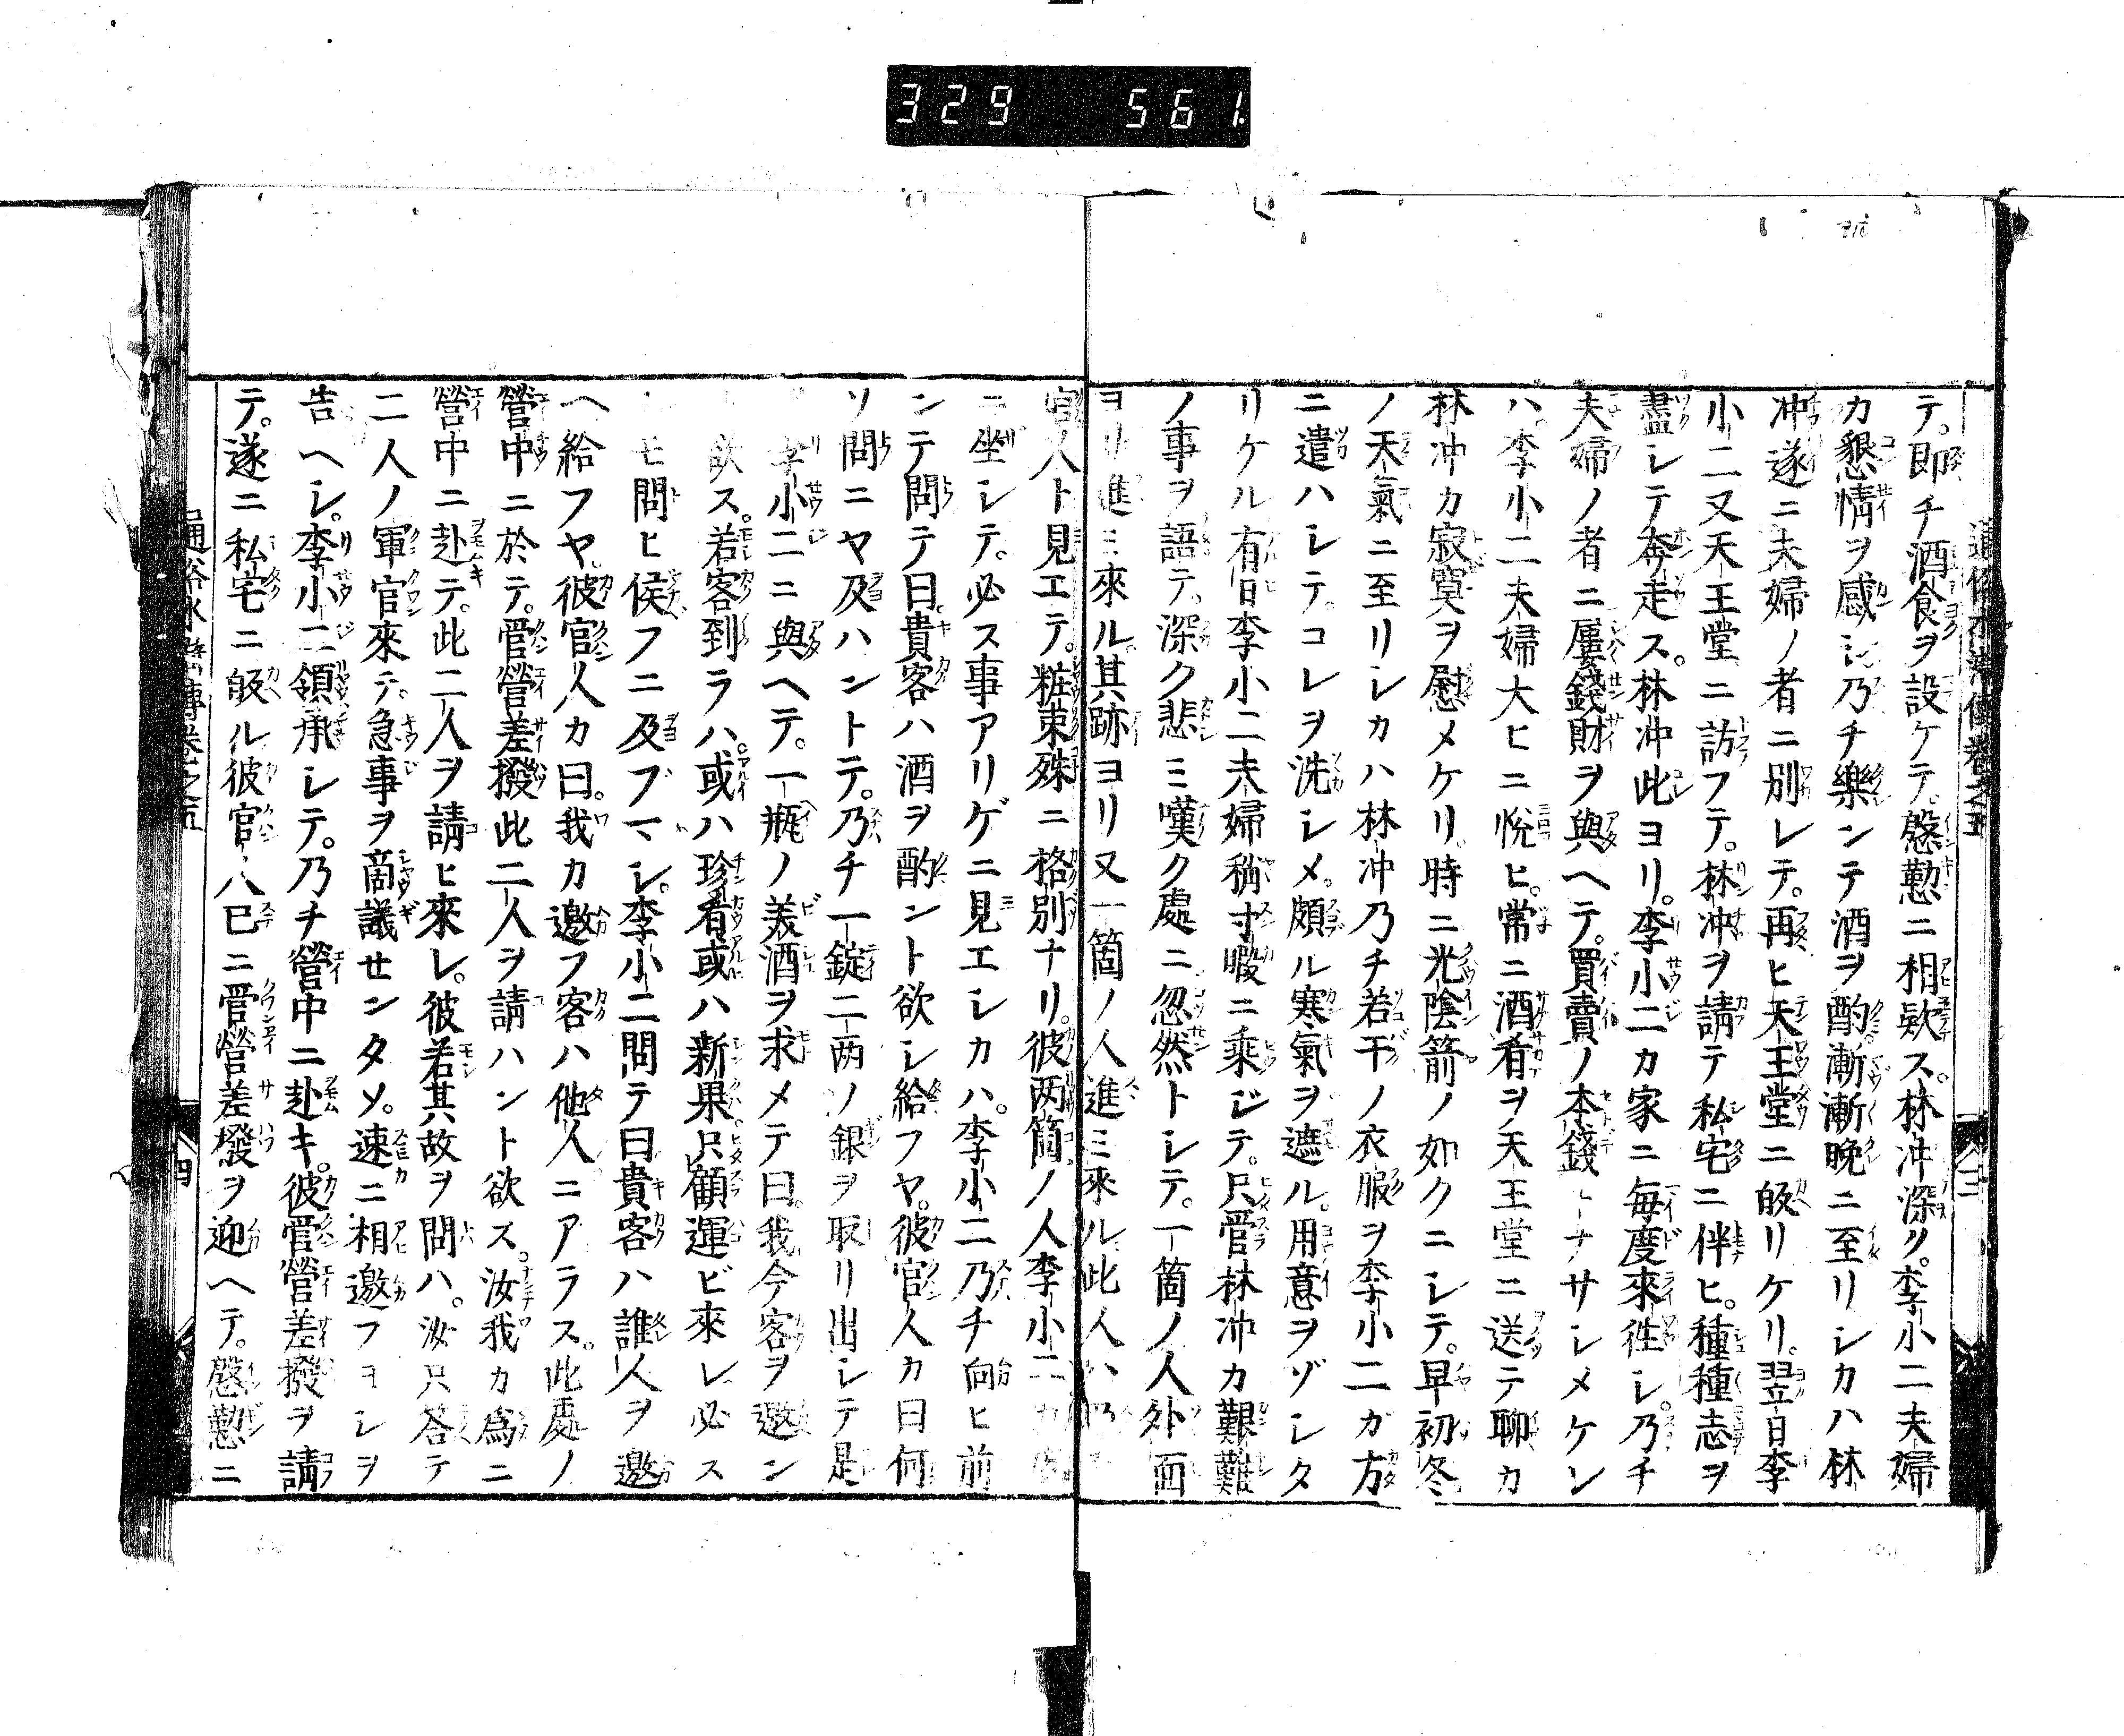 329 561
テ。即チ酒食ヲ設ケテ。慇懃ニ相欵ス。林冲深ク。李小二夫婦
カ懇情ヲ感シ乃チ樂ンテ酒ヲ酌漸漸晩ニ至リシカハ林
冲遂ニ夫婦ノ者ニ別レテ。再ヒ天王堂ニ皈リケリ。翌日李
小二又天王堂ニ訪フテ。林冲ヲ請テ私宅ニ伴ヒ。種種志ヲ
盡シテ奔走ス。林冲此ヨリ。李小二カ家ニ毎度來徃シ。乃チ
夫婦ノ者ニ屢錢財ヲ與ヘテ。買賣ノ本錢トナサシメケレ
ハ。李小二夫婦大ヒニ悅ヒ。常ニ酒肴ヲ天王堂ニ送テ聊カ
林冲カ寂寞ヲ慰メケリ。時ニ光陰箭ノ如クニシテ。早初冬
ノ天氣ニ至リシカハ林冲乃チ若干ノ衣服ヲ李小二カ方
ニ遣ハシテ。コレヲ洗シメ。頗ル寒氣ヲ遮ル。用意ヲゾシタ
リケル有日李小二夫婦稱寸暇ニ乘ジテ。只管林冲カ艱難
ノ事ヲ語テ。深ク悲ミ嘆ク處ニ忽然トシテ。一箇ノ人外面
ヨリ進ミ來ル。其跡ヨリ又一箇ノ人進ミ來ル此人ハ乃
官人ト見エテ。粧束殊ニ格別ナリ。彼两箇ノ人李小二カ
ニ坐シテ。必ス事アリゲニ見エシカハ。李小二乃チ向ヒ前
ンテ問テ曰。貴客ハ酒ヲ酌ント欲シ給フヤ。彼官人カ曰何
ソ問ニヤ及ハントテ。乃チ一錠二两ノ銀ヲ取リ出シテ是
李小二ニ與ヘテ。一瓶ノ美酒ヲ求メテ曰。我今客ヲ邀ン
欲ス。若客到ラハ。或ハ珍肴或ハ新果只顧運ビ來レ必ス
モ問ヒ候フニ及ブマシ。李小二問テ曰貴客ハ誰人ヲ邀
ヘ給フヤ。彼官人カ曰。我カ邀フ客ハ他人ニアラス。此處ノ
營中ニ於テ。管營差撥此二人ヲ請ハント欲ス。汝我カ爲ニ
營中ニ赴テ。此二人ヲ請ヒ來レ。彼若其故ヲ問ハ。汝只答テ
二人ノ軍官來テ。急事ヲ商議センタメ。速ニ相邀フヨシヲ
告ヘシ。李小二領承シテ。乃チ營中ニ赴キ。彼管營差撥ヲ請
テ。遂ニ私宅ニ皈ル彼官人已ニ管營差撥ヲ迎ヘテ。慇懃ニ
通俗水滸傳卷之五
四